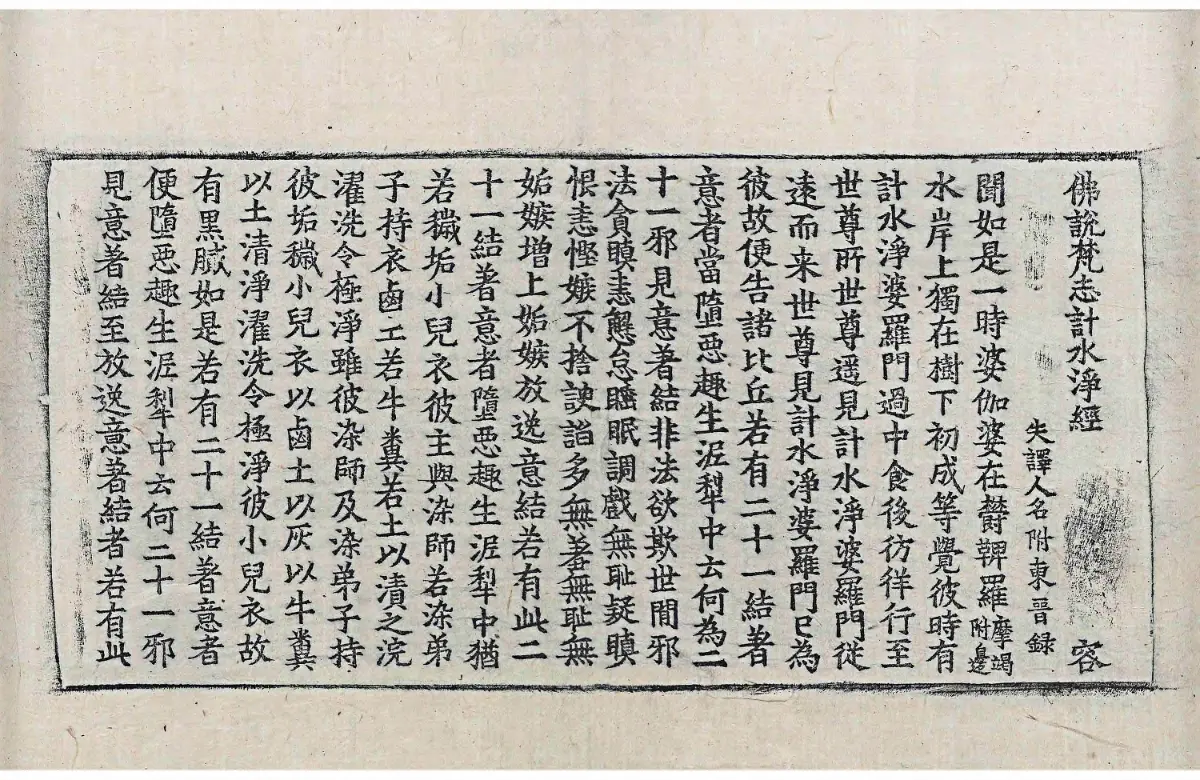 佛說梵志計水淨經 容
失譯人名附東晉錄
聞如是一時婆伽婆在欝鞞羅摩竭附邊
水岸上獨在樹下初成等覺彼時有
計水淨婆羅門過中食後彷徉行至
世尊所世尊遥見計水淨婆羅門從
遠而来世尊見計水淨婆羅門已為
彼故便告諸比丘若有二十一結著
意者當墮惡趣生泥犁中云何為二
十一邪見意著結非法欲欺世間邪
法貪瞋恚懈怠睡眠調戲無耻疑瞋
恨恚慳嫉不捨諛諂多無著無耻無
妬嫉增上妬嫉放逸意結若有此二
十一結著意者墮惡趣生泥犁中猶
若穢垢小兒衣彼主與染師若染弟
子持衣鹵工若牛糞若土以漬之浣
濯洗令極淨雖彼染師及染弟子持
彼垢穢小兒衣以鹵土以灰以牛糞
以土清淨濯洗令極淨彼小兒衣故
有黑膩如是若有二十一結著意者
便墮惡趣生泥犁中云何二十一邪
見意著結至放逸意著結者若有此